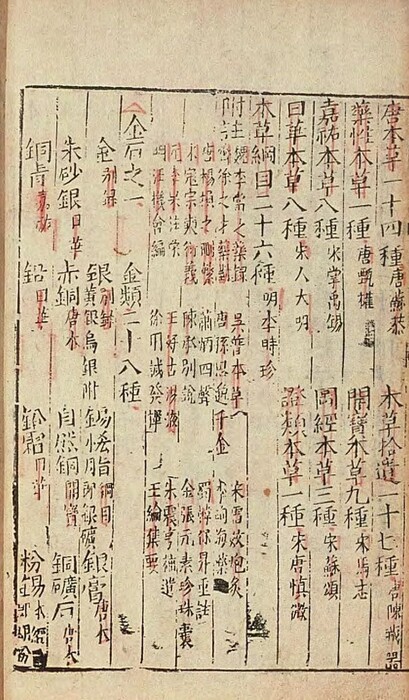 唐本草一十四種唐蘇恭 本草拾遺一十七種唐陳藏器
藥性本草一種唐甄權 開寶本草九種宋馬志
嘉祐本草八種宋掌禹錫 圖經本草三種宋蘇頌
日華本草八種宋人大明 證類本草一種宋唐慎微
本草綱目二十六種明李時珍
附註 魏李當之藥錄 吳普本草 宋雷斅炮炙
齊徐之才藥對 唐孫思邈千金
唐楊損之刪繁 蕭炳四聲 蜀韓保昇重註
宋寇宗奭衍義 陳承別說 金張元素珍珠囊
王好古湯液 朱震亨補遺
明汪機會編 徐用誠發揮 王綸集要
金石之一 金類二十八種
金別錄 銀別錄黃銀烏銀附 錫恡脂綱目 銀膏唐本
朱砂銀日華 赤銅唐本 自然銅開寶 銅礦石唐本
銅青嘉祐 鉛日華 鉛霜日華 粉錫